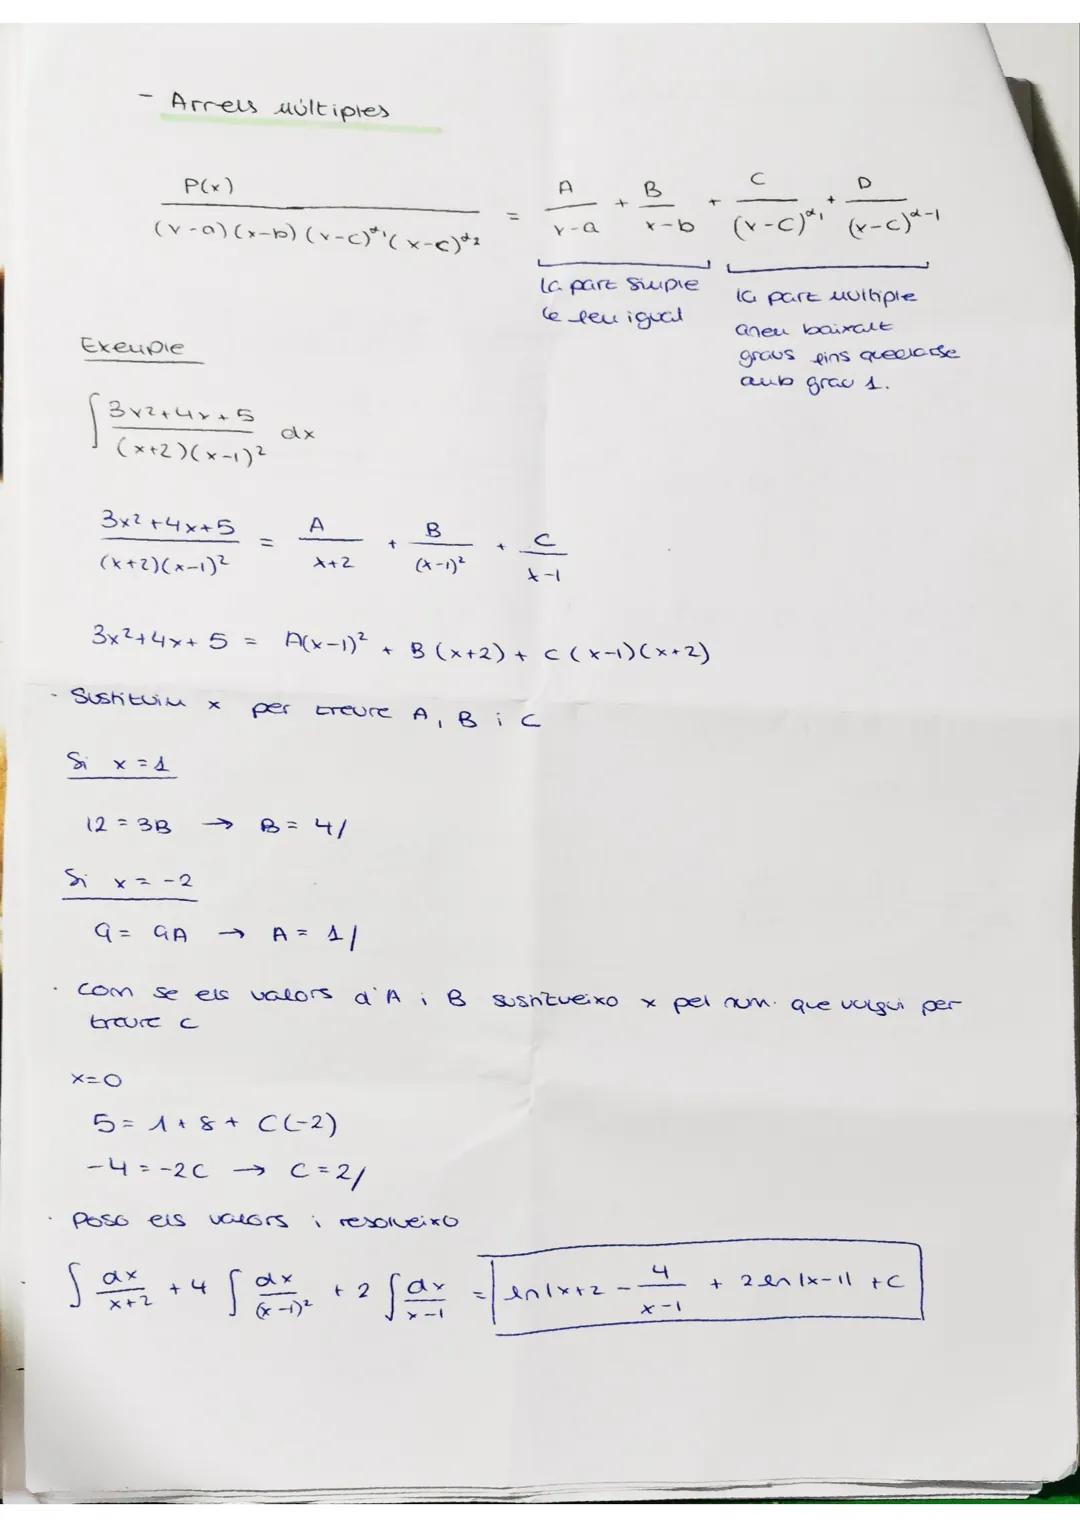 - Arrels múltiples
P(x) / (x-a)(x-b)(x-c)^α1(x-c)^α2 = A/(x-a) + B/(x-b) + C/(x-c)^α1 + D/(x-c)^α-1
la part simple
le feu igual
la part multiple
aneu baixant
graus fins quedarse
amb grau 1.
Exemple
∫ (3x²+4x+5)/((x+2)(x-1)²) dx
(3x²+4x+5)/((x+2)(x-1)²) = A/(x+2) + B/(x-1)² + C/(x-1)
3x²+4x+5 = A(x-1)² + B(x+2) + C(x-1)(x+2)
· Sustituim x per treure A, B i C
Si x=1
12=3B → B=4/
Si x=-2
9=9A → A=1/
· Com se els valors d'A i B sustitueixo x pel num. que vulgui per
treure C
x=0
5=1+8+C(-2)
-4=-2C → C=2/
· Poso els valors i resolveixo
∫ dx/(x+2) + 4 ∫ dx/(x-1)² + 2 ∫ dx/(x-1) = ln|x+2 - 4/(x-1) + 2ln|x-1| + C